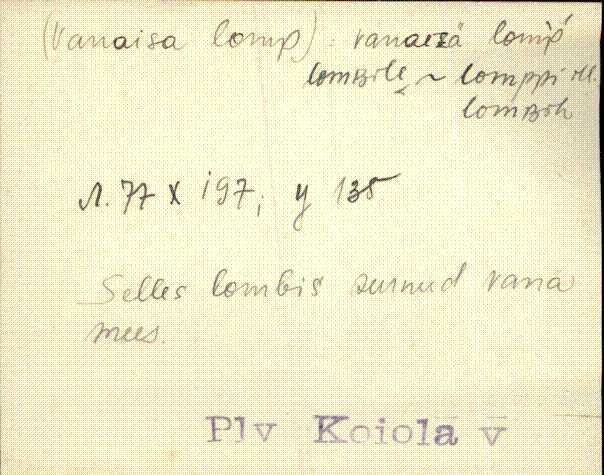 (Vanaisa lomp) : vanaesä lomp'
lombile ~ lomppi ill.
lombih
Л. 77 X 197; y 135
Selles lombis surnud vana
mees.
Plv Koiola v